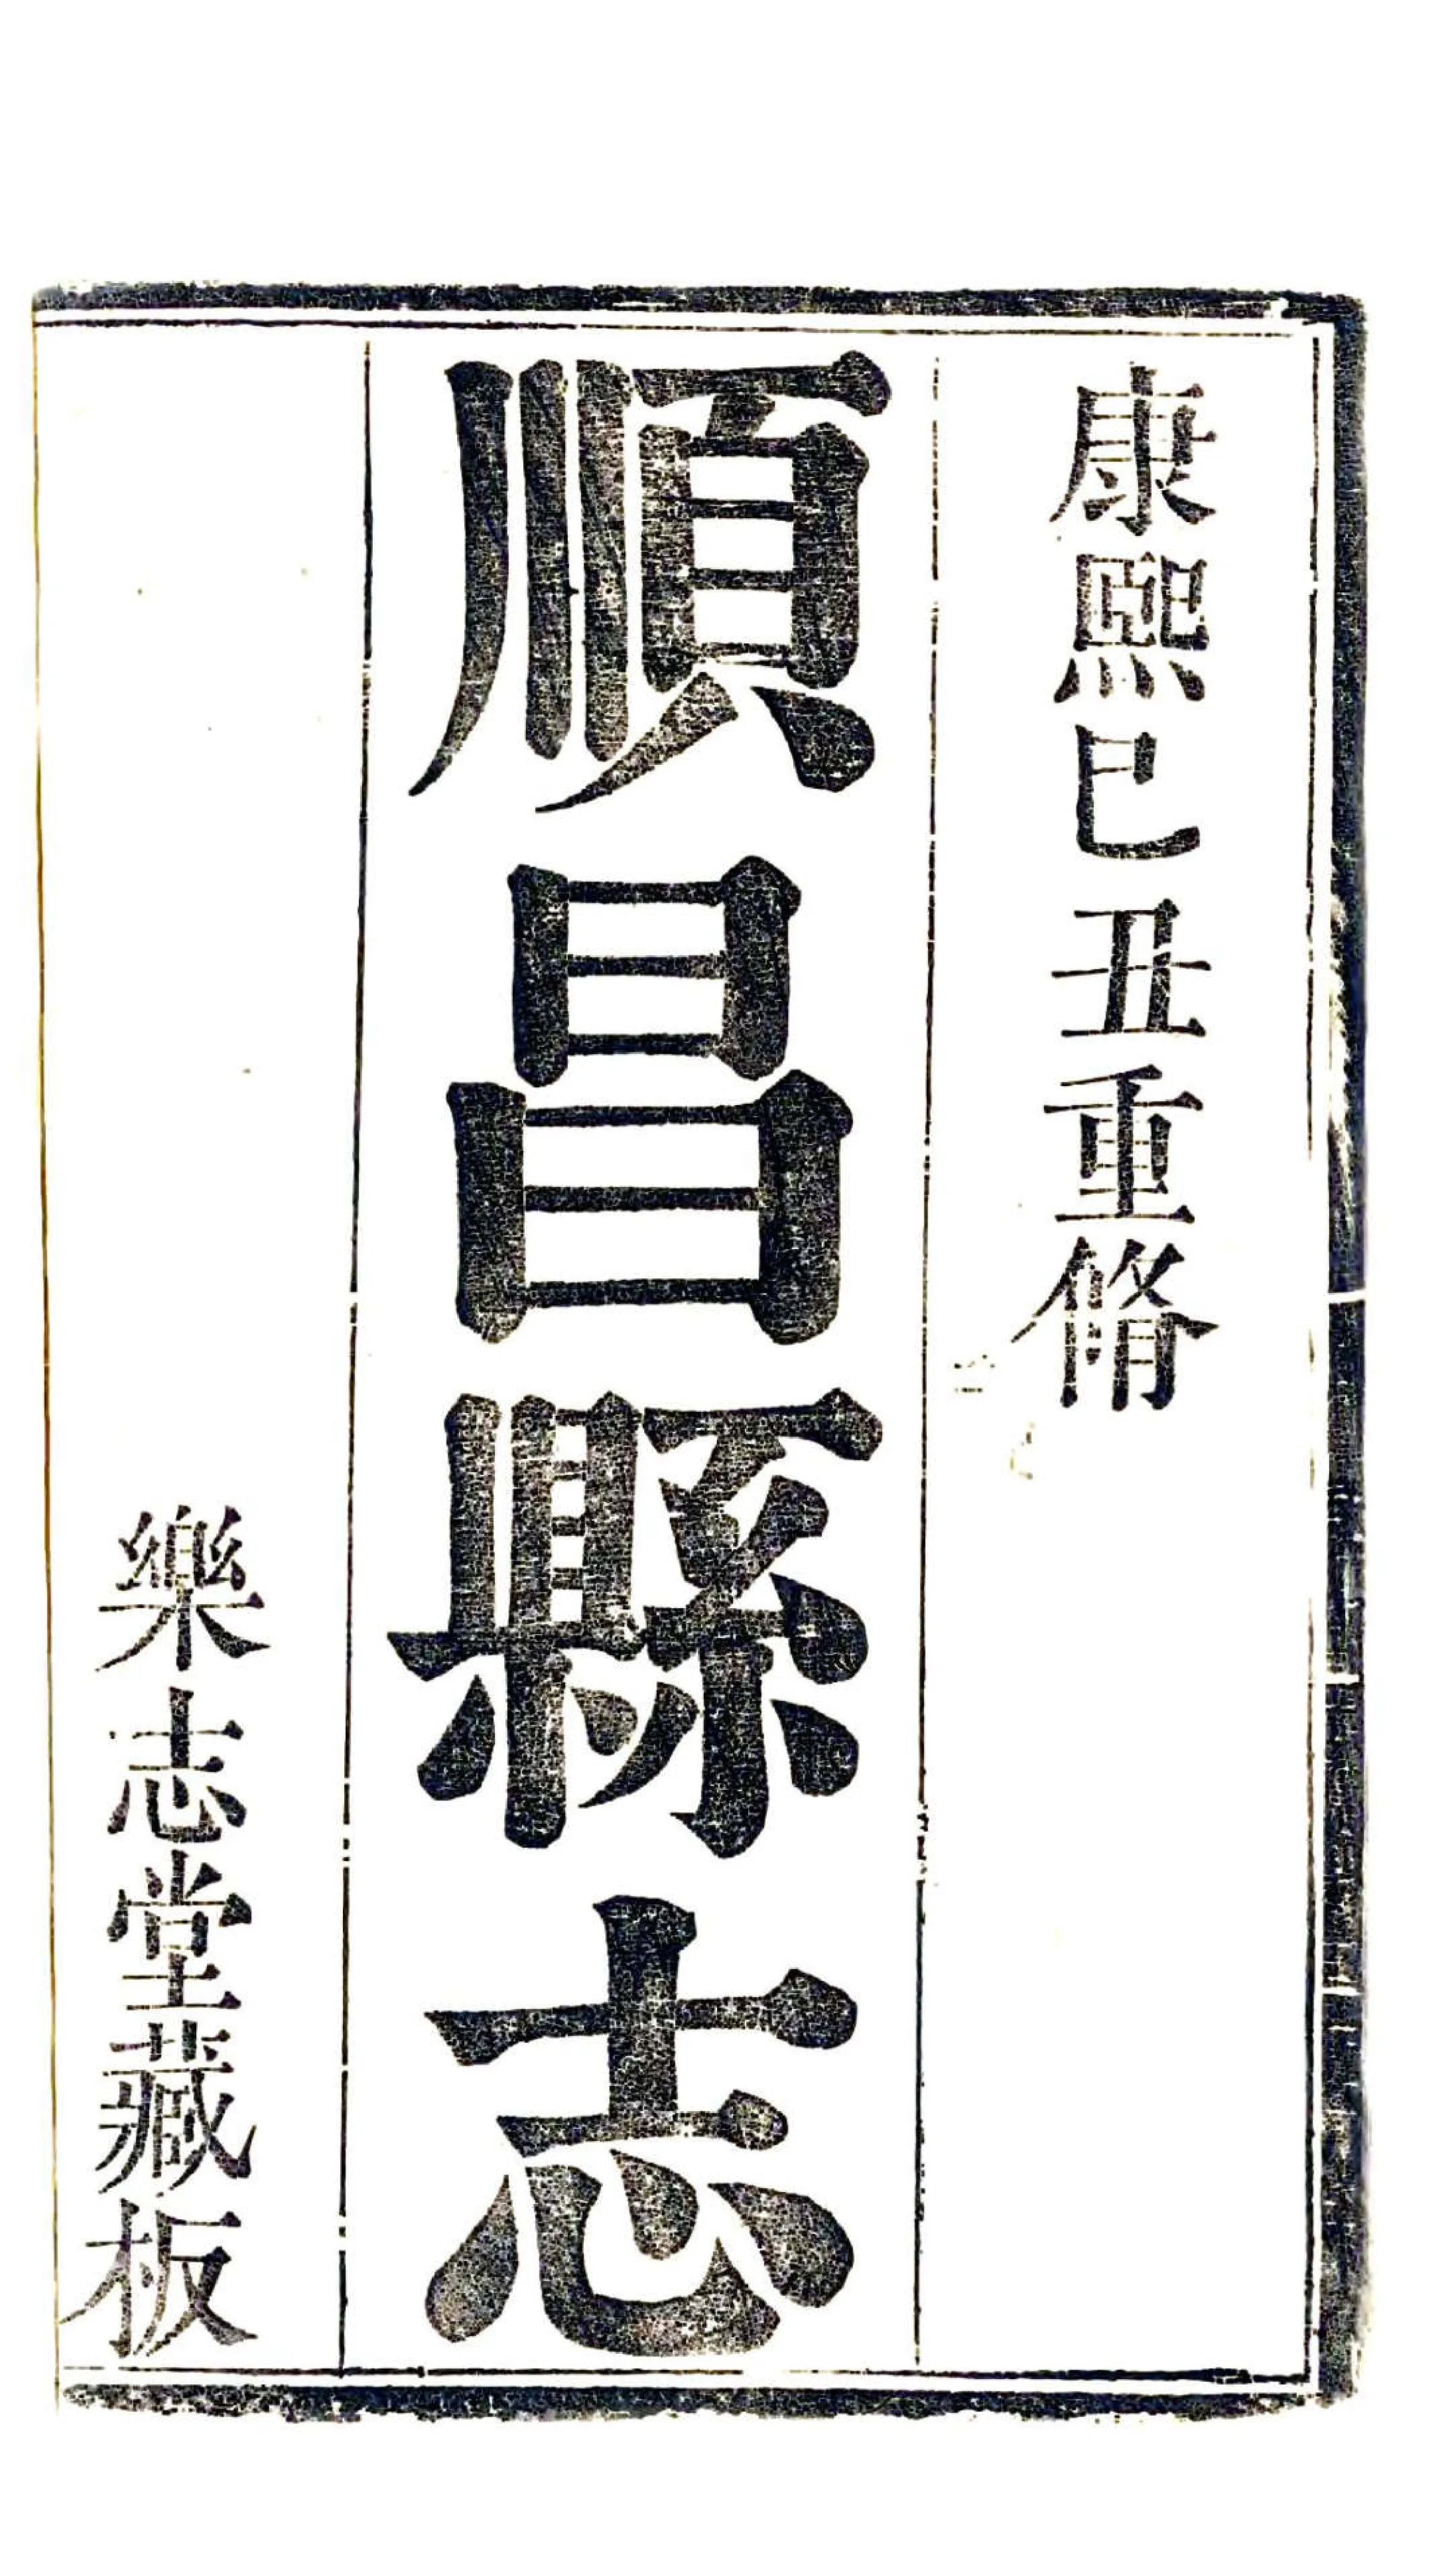 康熙已丑重脩
順昌縣志
樂志堂藏板